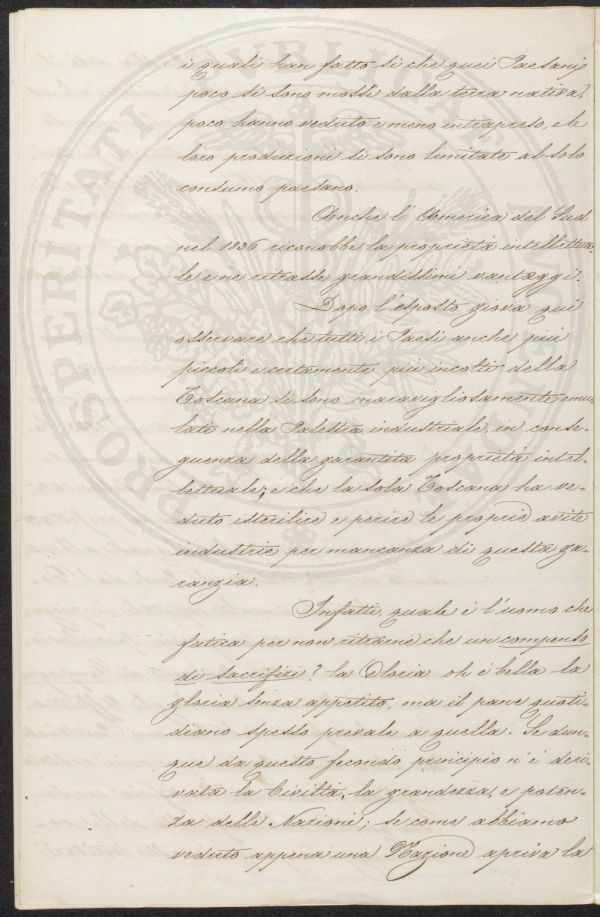 i quali han fatto sì che quei Paesani
poco si sono mossi dalla terra nativa,
poco hanno veduto e meno intrapreso, e le
loro produzioni si sono limitate al solo
consumo paesano.
Anche l'America del Sud
nel 1836 riconobbe la proprietà intellettua-
le e ne ritrasse grandissimi vantaggi.
Dopo l'esposto giova quì
osservare che tutti i Paesi anche più
piccoli e certamente più incolti della
Toscana si sono maravigliosamente emu-
lati nella Palestra industriale, in conse-
guenza della garantita proprietà intel-
lettuale; e che la sola Toscana ha ve-
duto isterilire e perire le proprie avite
industrie per mancanza di questa ga-
ranzia.
Infatti, quale è l'uomo che
fatica per non ritrarne che un compenso
di sacrifizi? la Gloria oh è bella la
gloria senza appetito, ma il pane quoti-
diano spesso prevale a quella. Se dun-
que da questo fecondo principio n'è deri-
vata la Civiltà, la grandezza, e poten-
za delle Nazioni; se come abbiamo
veduto appena una Nazione apriva la
PROSPERITATI PVBLICAE AVGENDAE